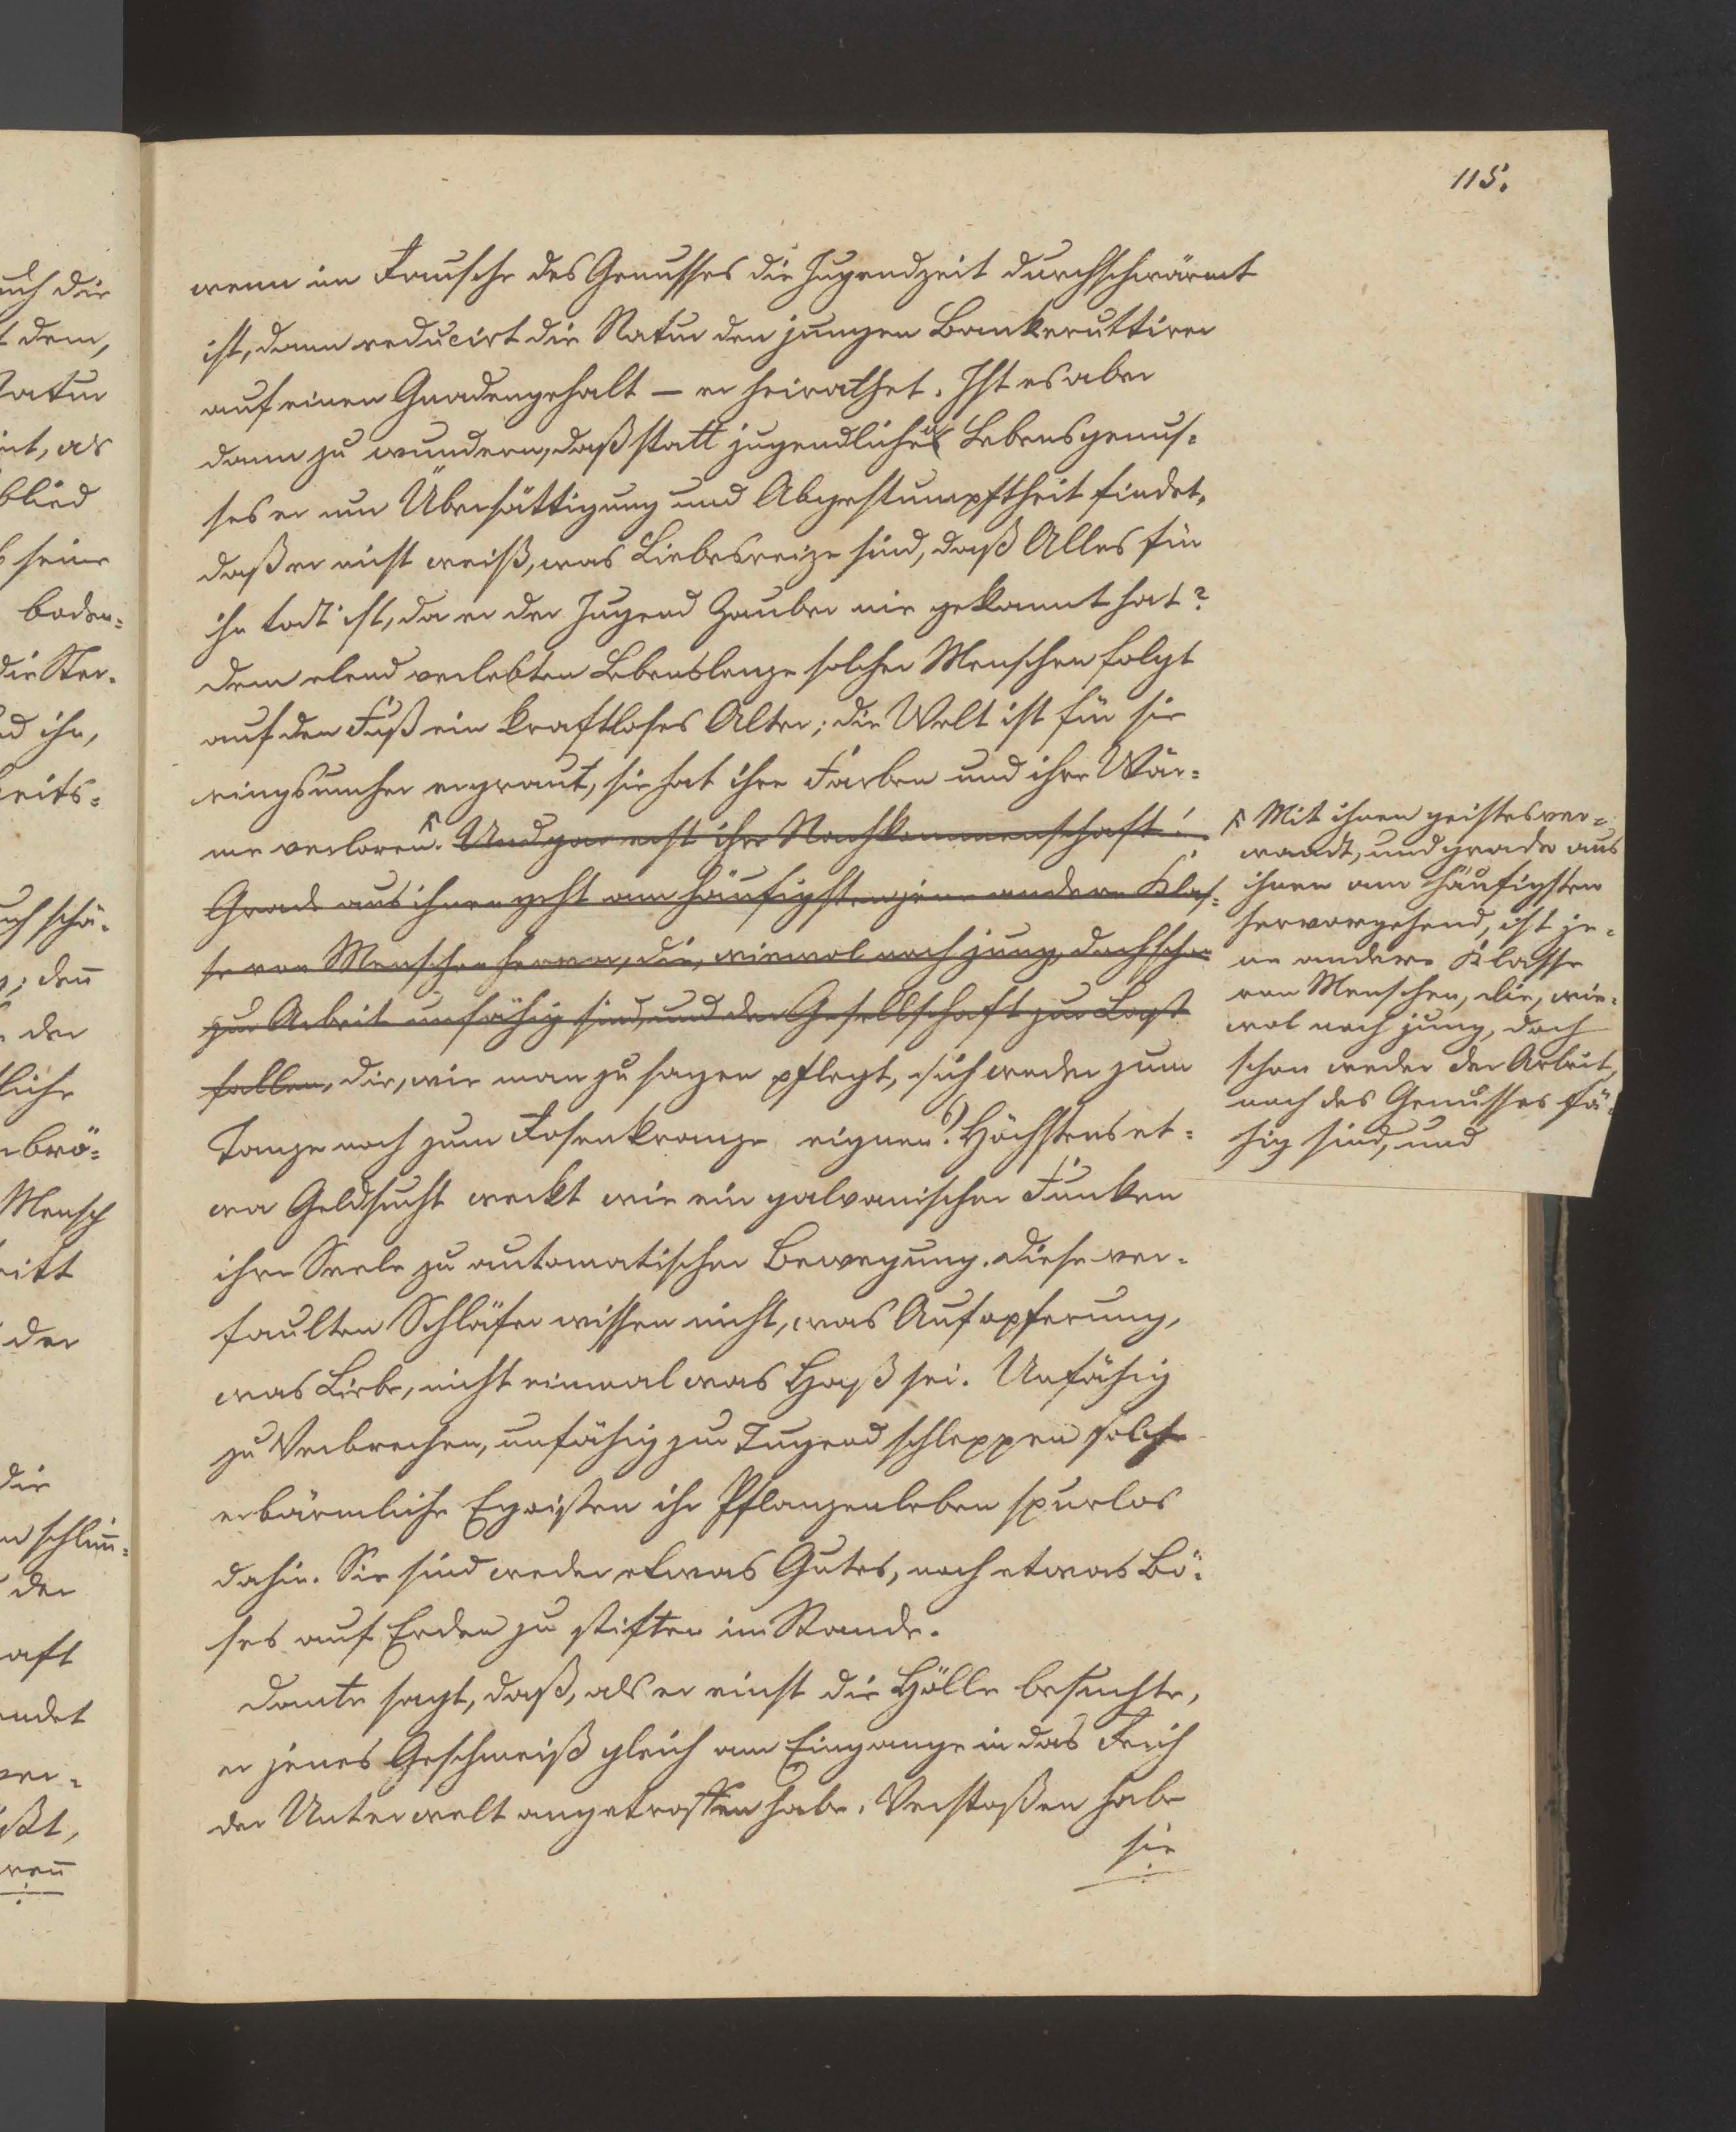 115.
wenn im Rausche des Genusses die Jugendzeit durchschwärmt
ist, dann reducirt die Natur den jungen Bankeruttirer
auf einen Gnadengehalt – er heirathet. Ist es aber
dann zu wundern, daß statt jugendlichen Lebensgenus-
ses er nur Übersättigung und Abgestumpftheit findet,
daß er nicht weiß, was Liebesreize sind, daß Alles für
ihn todt ist, da er der Jugend Zauber nie gekannt hat?
Dem elend verlebten Lebenslenze solcher Menschen folgt
auf den Fuß ein kraftloses Alter; die Welt ist für sie
ringsumher ergraut, sie hat ihre Farben und ihre Wär-
me verloren. Und gar erst ihre Nachkommenschaft!
Grade aus ihnen geht am häufigsten jene andere Klas-
se von Menschen hervor, die, wiewol noch jung, doch schon
zur Arbeit unfähig sind, und der Gesellschaft zur Last
fallen, die, wie man zu sagen pflegt, sich weder zum
Tanze noch zum Rosenkranze eignen. 6) Höchstens et-
wa Geldsucht weckt wie ein galvanischer Funken
ihre Seele zu automatischer Bewegung. Diese ver-
faulten Schläfer wissen nicht, was Aufopferung,
was Liebe, nicht einmal was Haß sei. Unfähig
zu Verbrechen, unfähig zur Tugend schleppen solche
erbärmliche Egoisten ihr Pflanzenleben spurlos
dahin. Sie sind weder etwas Gutes, noch etwas Bö-
ses auf Erden zu stiften im Stande.
Dante sagt, daß, als er einst die Hölle besuchte,
er jenes Geschmeiß gleich am Eingange in das Reich
der Unterwelt angetroffen habe. Verstoßen habe
sie
Mit ihnen geistesver-
wandt, und grade aus
ihnen am häufigsten
hervorgehend, ist je-
ne andere Klasse
von Menschen, die, wie-
wol noch jung, doch
schon weder der Arbeit,
noch des Genusses fä-
hig sind, und